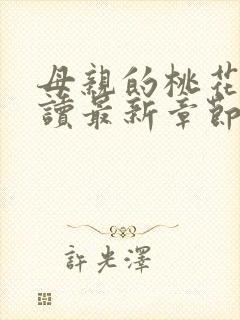 母親的桃花
讀最新章節
許光澤